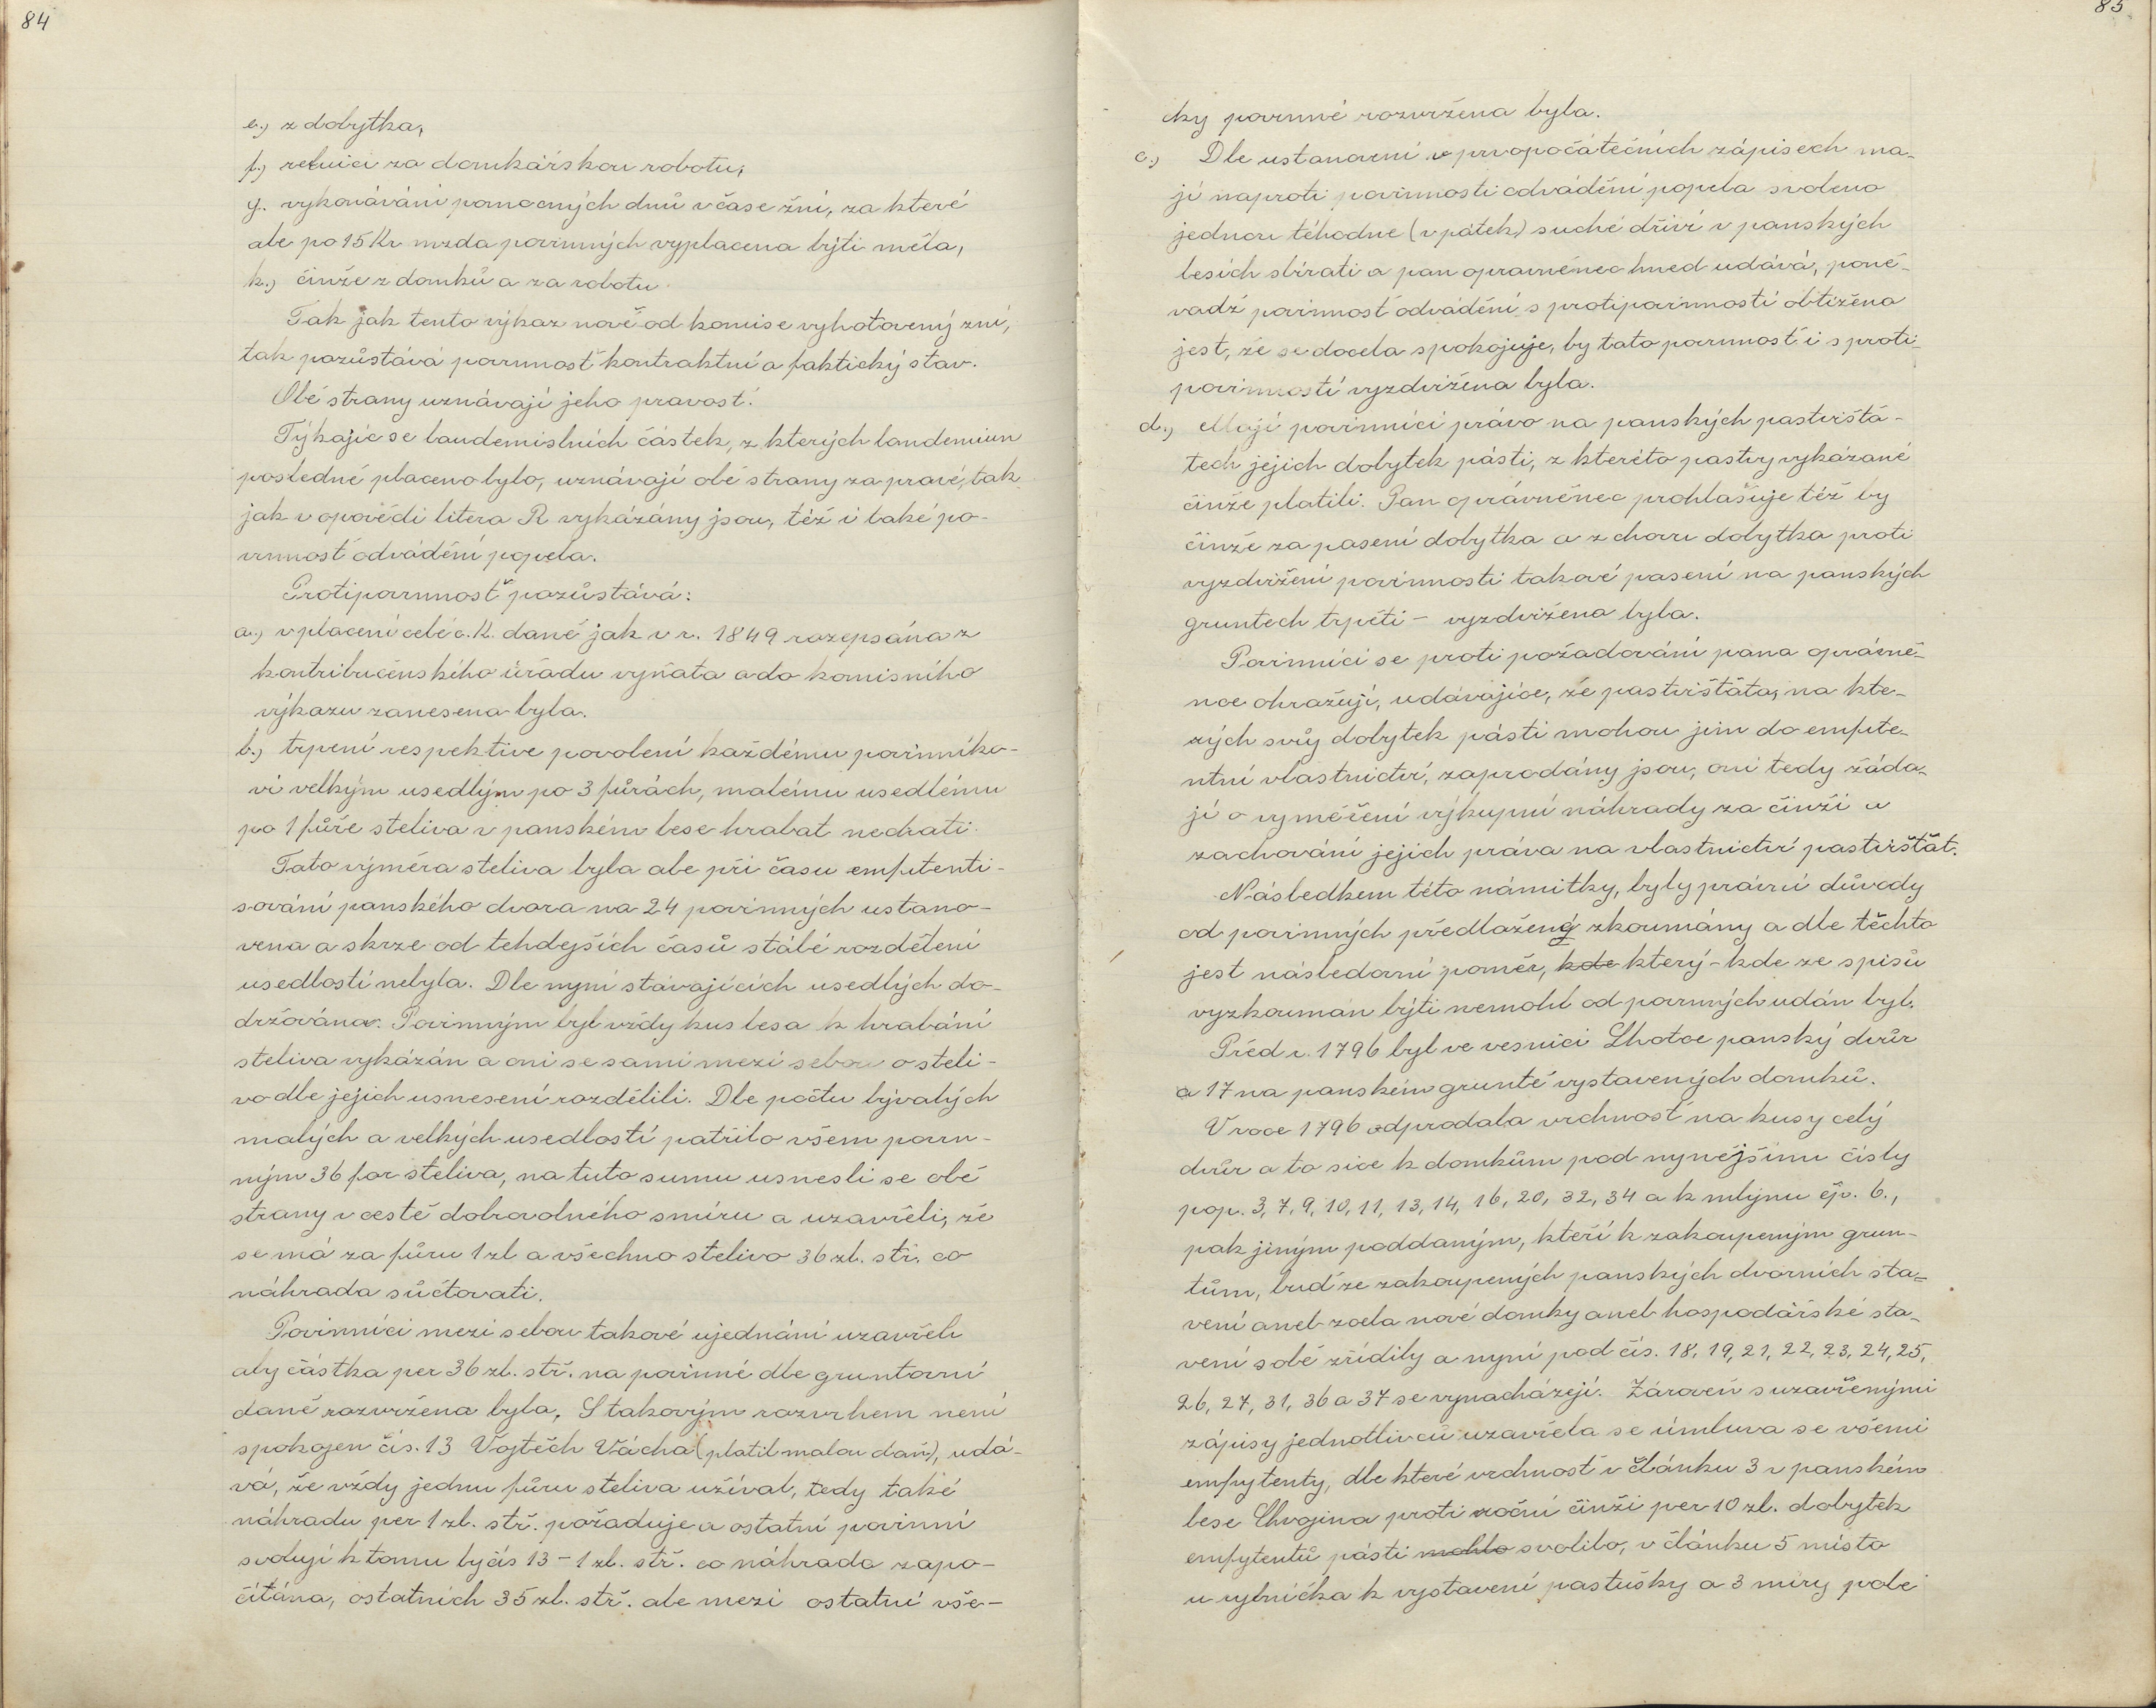 84
e.) z dobytka,
f.) reluici za domkářskou robotu,
g. vykonávání pomocných dnů v čase žní, za které
ale po 15 Kr mzda povinných vyplacena býti měla,
h.) činže z domků a za robotu.
Tak jak tento výkaz nově od komise vyhotovený zní,
tak pozůstává povinnosť kontraktní a faktický stav.
Obě strany uznávají jeho pravosť.
Týkajíc se laudemiálních částek, z kterých laudemium
posledně placeno bylo, uznávají obě strany za pravé, tak
jak v opovědi litera R vykázány jsou, též i také po-
vinnosť odvádění popela.
Protipovinnosť pozůstává:
a.) v placení celé c. K. daně jak v r. 1849 rozepsána z
kontribučenského úřadu vyňata a do komisního
výkazu zanesena byla.
b.) trpení respektive povolení každému povinníko-
vi velkým usedlým po 3 fůrách, malému usedlému
po 1 fůře steliva v panském lese hrabat nechati.
Tato výměra steliva byla ale při času emfitenti-
sování panského dvora na 24 povinných ustano-
vena a skrze od tehdejších časů stálé rozdělení
usedlostí nebyla. Dle nyní stávajících usedlých do-
držována. Povinným byl vždy kus lesa k hrabání
steliva vykázán a oni se sami mezi sebou o steli-
vo dle jejich usnesení rozdělili. Dle počtu bývalých
malých a velkých usedlostí patřilo všem povin-
ným 36 for steliva, na tuto sumu usnesli se obě
strany v cestě dobrovolného smíru a uzavřeli, že
se má za fůru 1 zl a všechno stelivo 36 zl. stř. co
náhrada súčtovati.
Povinníci mezi sebou takové ujednání uzavřeli
aby částka per 36 zl. stř. na povinné dle gruntovní
daně rozvržena byla. S takovým rozvrhem není
spokojen čís. 13 Vojtěch Vácha (platil malou daň), udá-
vá, že vždy jednu fůru steliva užíval, tedy také
náhradu per 1 zl. stř. požaduje a ostatní povinní
svolují k tomu by čís 13 – 1 zl. stř. co náhrada zapo-
čítána, ostatních 35 zl. stř. ale mezi ostatní vše-
85
cky povinné rozvržena byla.
c.) Dle ustanovení v prvopočátečních zápisech ma-
jí naproti povinnosti odvádění popela svoleno
jednou téhodne (v pátek) suché dříví v panských
lesích sbírati a pan oprávněnec hned udává, poně-
vadž povinnosť odvádění s protipovinností obtížena
jest, že se docela spokojuje, by tato povinnosť i s proti-
povinností vyzdvižena byla.
d.) Mají povinníci právo na panských pastvištá-
tech jejich dobytek pásti, z kteréto pastvy vykázané
činže platili. Pan oprávněnec prohlašuje též by
činže za pasení dobytka a z chovu dobytka proti
vyzdvižení povinnosti takové pasení na panských
gruntech trpěti – vyzdvižena byla.
Povinníci se proti požadování pana oprávně-
nce ohražují, udávajíce, že pastvištáta, na kte-
rých svůj dobytek pásti mohou jim do emfite-
ntní vlastnictví, zaprodány jsou, oni tedy žáda-
jí o vyměření výkupní náhrady za činži a
zachování jejich práva na vlastnictví pastvišťat.
Následkem této námitky, byly právní důvody
od povinných předloženy zkoumány a dle těchto
jest následovní poměr, kde který – kde ze spisů
vyzkoumán býti nemohl od povinných udán byl.
Před r. 1796 byl ve vesnici Lhotce panský dvůr
a 17 na panském gruntě vystavených domků.
V roce 1796 odprodala vrchnosť na kusy celý
dvůr a to sice k domkům pod nynějšímu čísly
pop. 3, 7, 9, 10, 11, 13, 14, 16, 20, 32, 34 a k mlýnu čp. 6.,
pak jiným poddaným, kteří k zakoupeným grun-
tům, buď ze zakoupených panských dvorních sta-
vení aneb zcela nové domky aneb hospodářské sta-
vení sobě zřídily a nyní pod čís. 18, 19, 21, 22, 23, 24, 25,
26, 27, 31, 36 a 37 se vynacházejí. Zároveň s uzavřenými
zápisy jednotlivců uzavřela se úmluva se všemi
emfytenty, dle které vrchnosť v článku 3 v panském
lese Chvojina proti roční činži per 10 zl. dobytek
emfytentů pásti mohlo svolilo, v článku 5 místo
u rybníčka k vystavení pastušky a 3 míry pole